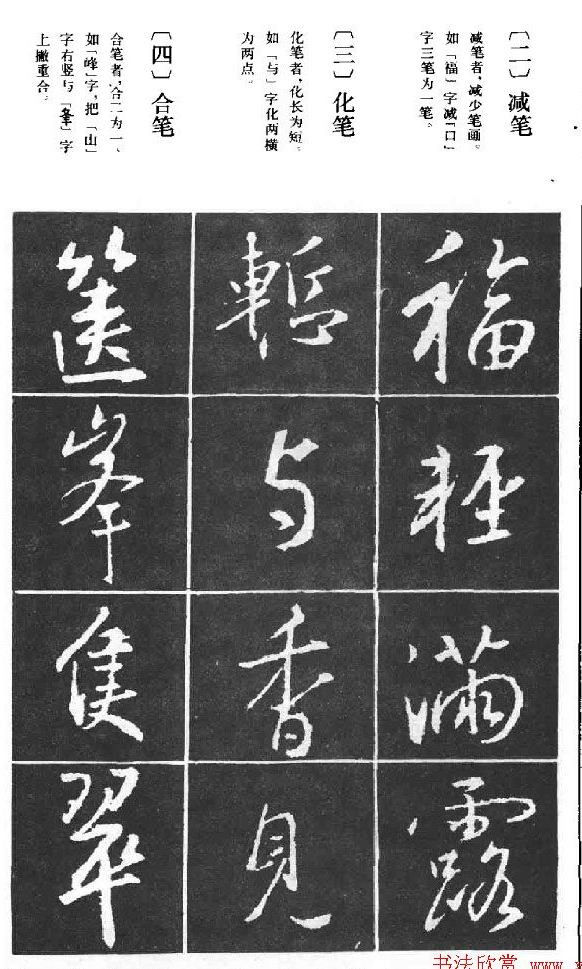 〔二〕减笔
减笔者，减少笔画。
如「福」字减「口」
字三笔为一笔。
〔三〕化笔
化笔者，化长为短。
如「与」字化两横
为两点。
〔四〕合笔
合笔者，合二为一、
如「峰」字，把「山」
字右竖与「夆」字
上撇重合。
福
輕
滿
露
与
香
見
峯
隻
翠
书法欣赏 www.